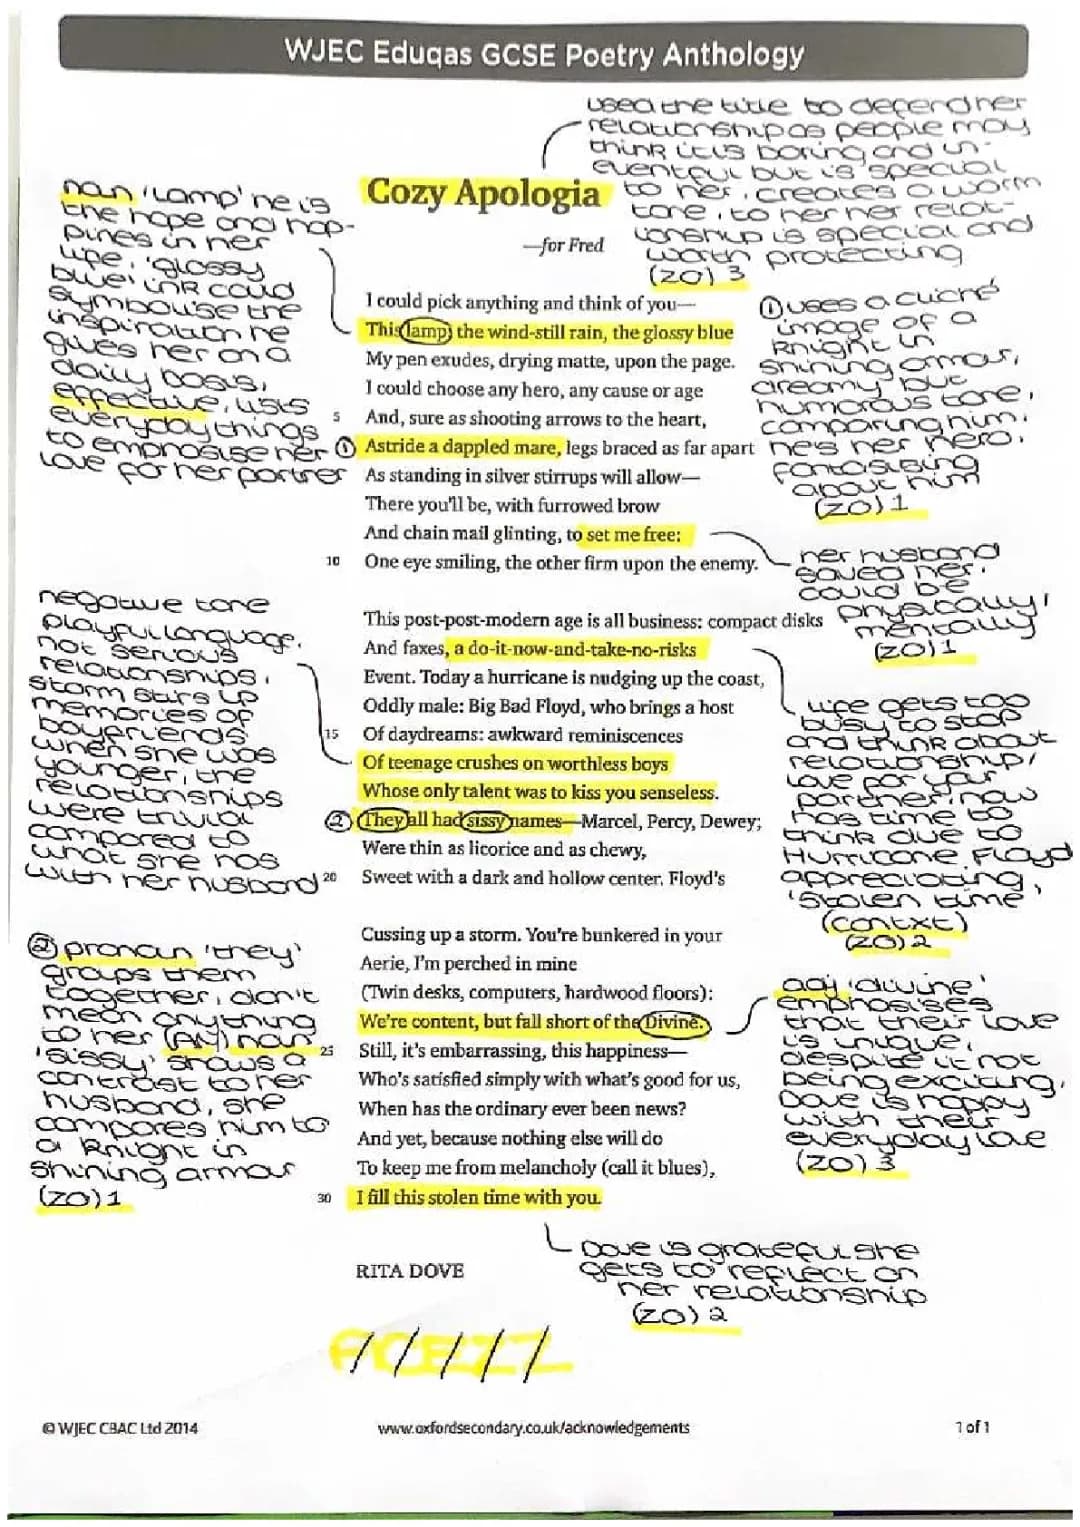 WJEC Eduqas GCSE Poetry Anthology
used the title to defend her
relationship as people may
think it is boring and un-
eventful but is special
to her, creates a warm
tone, to her her relat-
ionship is special and
worth protecting
(ZO) 3
noun 'lamp' he is
the hope and hap-
pines in her
life, 'glossy
blue' ink could
symbolise the
inspiration he
gives her on a
daily basis,
effective, lists
everyday things
to emphasise her
love for her partner
Cozy Apologia
—for Fred
I could pick anything and think of you—
This lamp, the wind-still rain, the glossy blue
My pen exudes, drying matte, upon the page.
I could choose any hero, any cause or age
5 And, sure as shooting arrows to the heart,
① Astride a dappled mare, legs braced as far apart
As standing in silver stirrups will allow—
There you'll be, with furrowed brow
And chain mail glinting, to set me free:
10 One eye smiling, the other firm upon the enemy.
① uses a cliché
image of a
knight in
shining armour,
dreamy but
humorous tone,
comparing him.
he's her hero.
fantasising
about him
(ZO) 1
her husband
saved her.
could be
physically/
mentally
(ZO) 1
negative tone
playful language.
not serious
relationships.
storm stirs up
memories of
boyfriends
when she was
younger, the
relationships
were trivial
compared to
what she has
with her husband
This post-post-modern age is all business: compact disks
And faxes, a do-it-now-and-take-no-risks
Event. Today a hurricane is nudging up the coast,
Oddly male: Big Bad Floyd, who brings a host
15 Of daydreams: awkward reminiscences
Of teenage crushes on worthless boys
Whose only talent was to kiss you senseless.
② They all had sissy names—Marcel, Percy, Dewey;
Were thin as licorice and as chewy,
20 Sweet with a dark and hollow center. Floyd's
life gets too
busy to stop
and think about
relationship/
love for your
partner. now
has time to
think due to
Hurricane Floyd
appreciating
'stolen time'
(context)
(ZO) 2
② pronoun 'they'
groups them
together, don't
mean anything
to her (AM) noun
'sissy' shows a
contrast to her
husband, she
compares him to
a knight in
shining armour
(ZO) 1
Cussing up a storm. You're bunkered in your
Aerie, I'm perched in mine
(Twin desks, computers, hardwood floors):
We're content, but fall short of the Divine.
25 Still, it's embarrassing, this happiness—
Who's satisfied simply with what's good for us,
When has the ordinary ever been news?
And yet, because nothing else will do
To keep me from melancholy (call it blues),
30 I fill this stolen time with you.
adj 'divine'
emphasises
that their love
is unique,
despite it not
being exciting,
Dove is happy
with their
everyday love
(ZO) 3
Dove is grateful she
gets to reflect on
her relationship
(ZO) 2
RITA DOVE
© WJEC CBAC Ltd 2014
www.oxfordsecondary.co.uk/acknowledgements
1 of 1